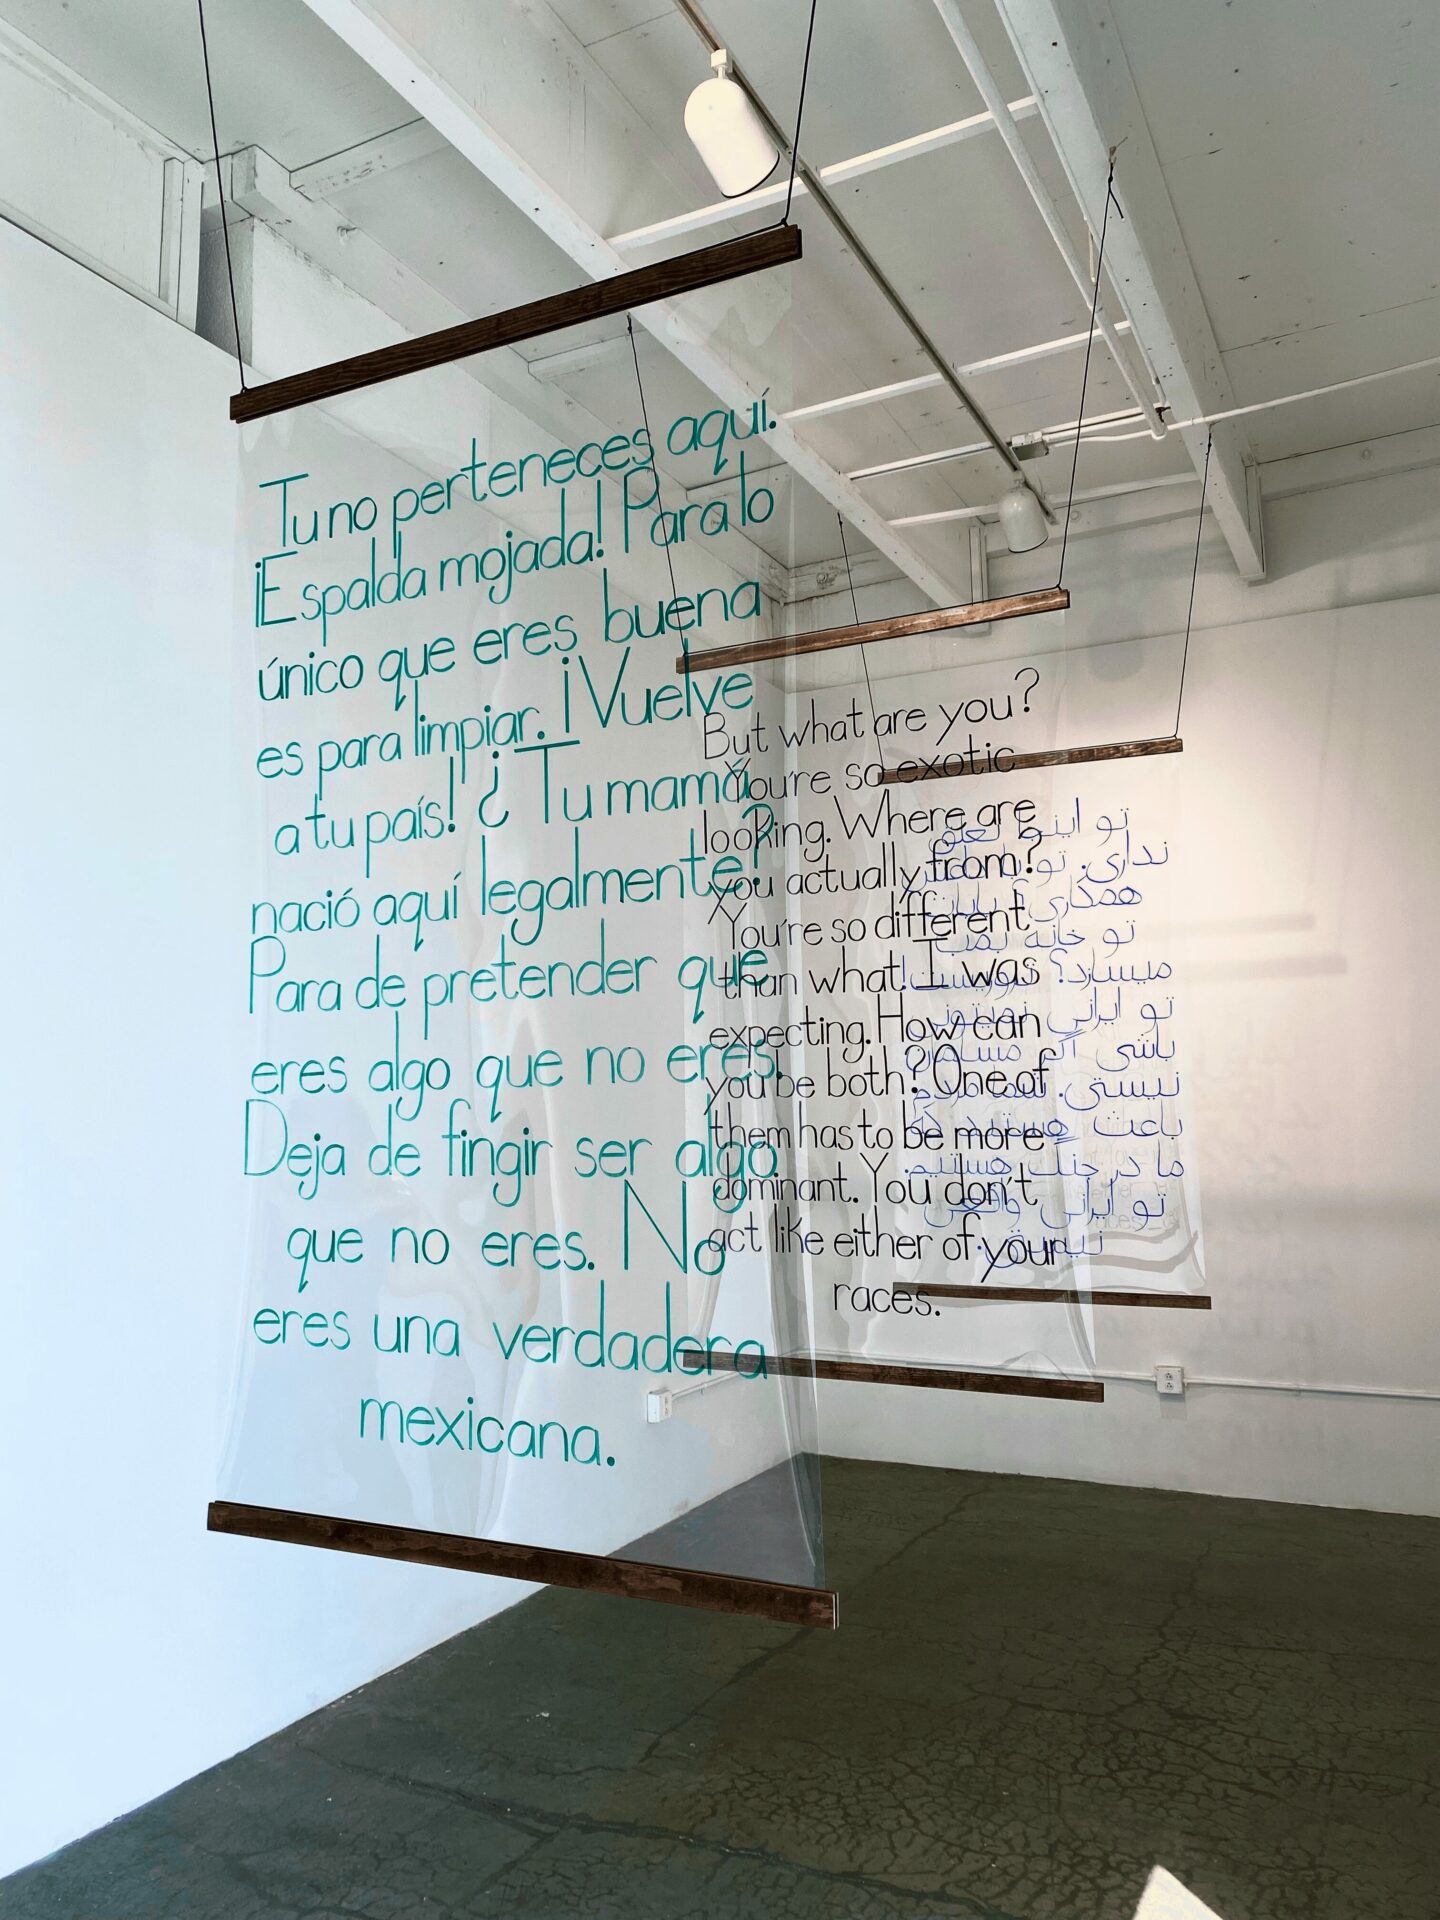 Tu no perteneces aquí.
¡Espalda mojada! Para lo
único que eres buena
es para limpiar. ¡Vuelve
a tu país! ¿Tu mamá
nació aquí legalmente?
Para de pretender que
eres algo que no eres.
Deja de fingir ser algo
que no eres. No
eres una verdadera
mexicana.
But what are you?
You're so exotic
looking. Where are
you actually from?
You're so different
than what I was
expecting. How can
you be both? One of
them has to be more
dominant. You don't
act like either of your
races.
تو اینجا تعلق
نداری. تو با
همکاری؟
تو خانه بمب
میسازد؟
تو ایرانی نمیتونی
باشی اگر مسلمان
نیستی. شما مردم
باعث هستید که
ما در جنگ هستیم.
تو ایرانی واقعی
نیستی.